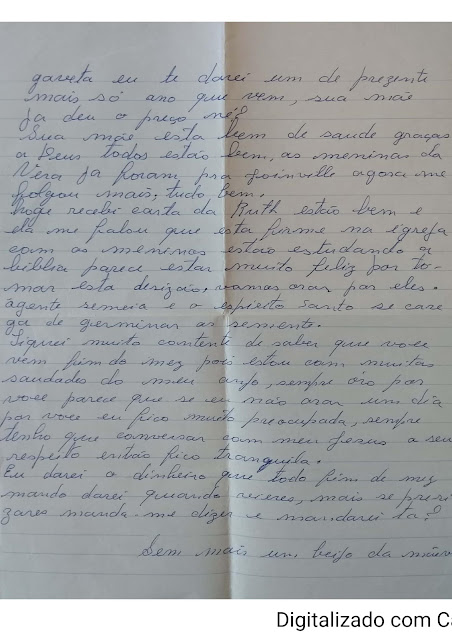 gaveta eu te darei um de prezente
mais só ano que vem, sua mãe
ja deu o preço né?
Sua mãe esta bem de saude graças
a Deus todos estão bem, as meninas da
Vera ja foram pra Joinville agora me
folgou mais, tudo bem.
hoje recebi carta da Ruth estão bem e
ela me falou que esta firme na igreja
com as meninas estão estudando a
bibblia parece estar muito feliz por to-
mar esta dezizão, vamos orar por eles.
agente semeia e o espirito Santo se care
ga de germinar as semente.
Fiquei muito contente de saber que voce
vem fim do mez pois estou com muitas
saudades do meu anjo, sempre óro por
voce parece que se eu não orar um dia
por voce eu fico muito preocupada, sempre
tenho que conversar com meu Jesus a seu
respeito então fico tranquila.
Eu darei o dinheiro que todo fim de mez
mando darei quando vieres, mais se preci
zares manda-me dizer e mandarei ta?
Sem mais um beijo da
Digitalizado com Ca